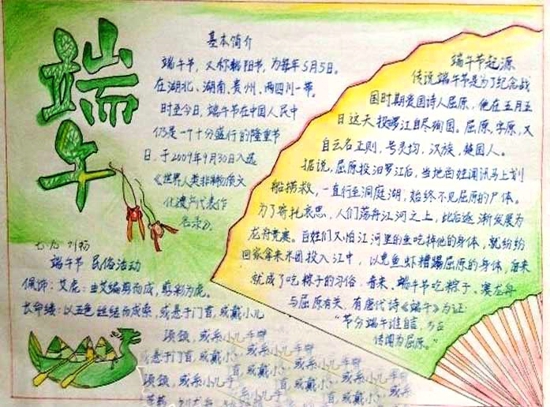 端午
基本简介
端午节，又称端阳节，为每年5月5日。
在湖北、湖南、贵州、四川一带。
时至今日，端午节在中国人民中
仍是一个十分盛行的隆重节
日，于2009年9月30日入选
《世界人类非物质文
化遗产代表作
名录》。
七.九 刘杨
端午节 民俗活动
佩饰：艾虎：由艾编剪而成，
长命缕：以五色丝结而成索，或悬于门首，或戴小儿
项颈，或系小儿手臂
或悬于门首，或戴小
项颈，或系小儿手
端午节起源
传说端午节是为了纪念战
国时期爱国诗人屈原，他在五月五
日这天投汨罗江自尽殉国。屈原，字原，又
自云名正则，号灵均，汉族，楚国人。
据说，屈原投汨罗江后，当地百姓闻讯马上划
船捞救，一直行至洞庭湖，始终不见屈原的尸体。
为了寄托哀思，人们荡舟江河之上，此后逐渐发展为
龙舟竞赛。百姓们又怕江河里的鱼吃掉他的身体，就纷纷
回家拿来米团投入江中，以免鱼虾糟蹋屈原的身体，后来
就成了吃粽子的习俗。看来，端午节吃粽子、赛龙舟
与屈原有关，有唐代诗《端午》为证：
“节分端午谁自言，万古
传闻为屈原。”